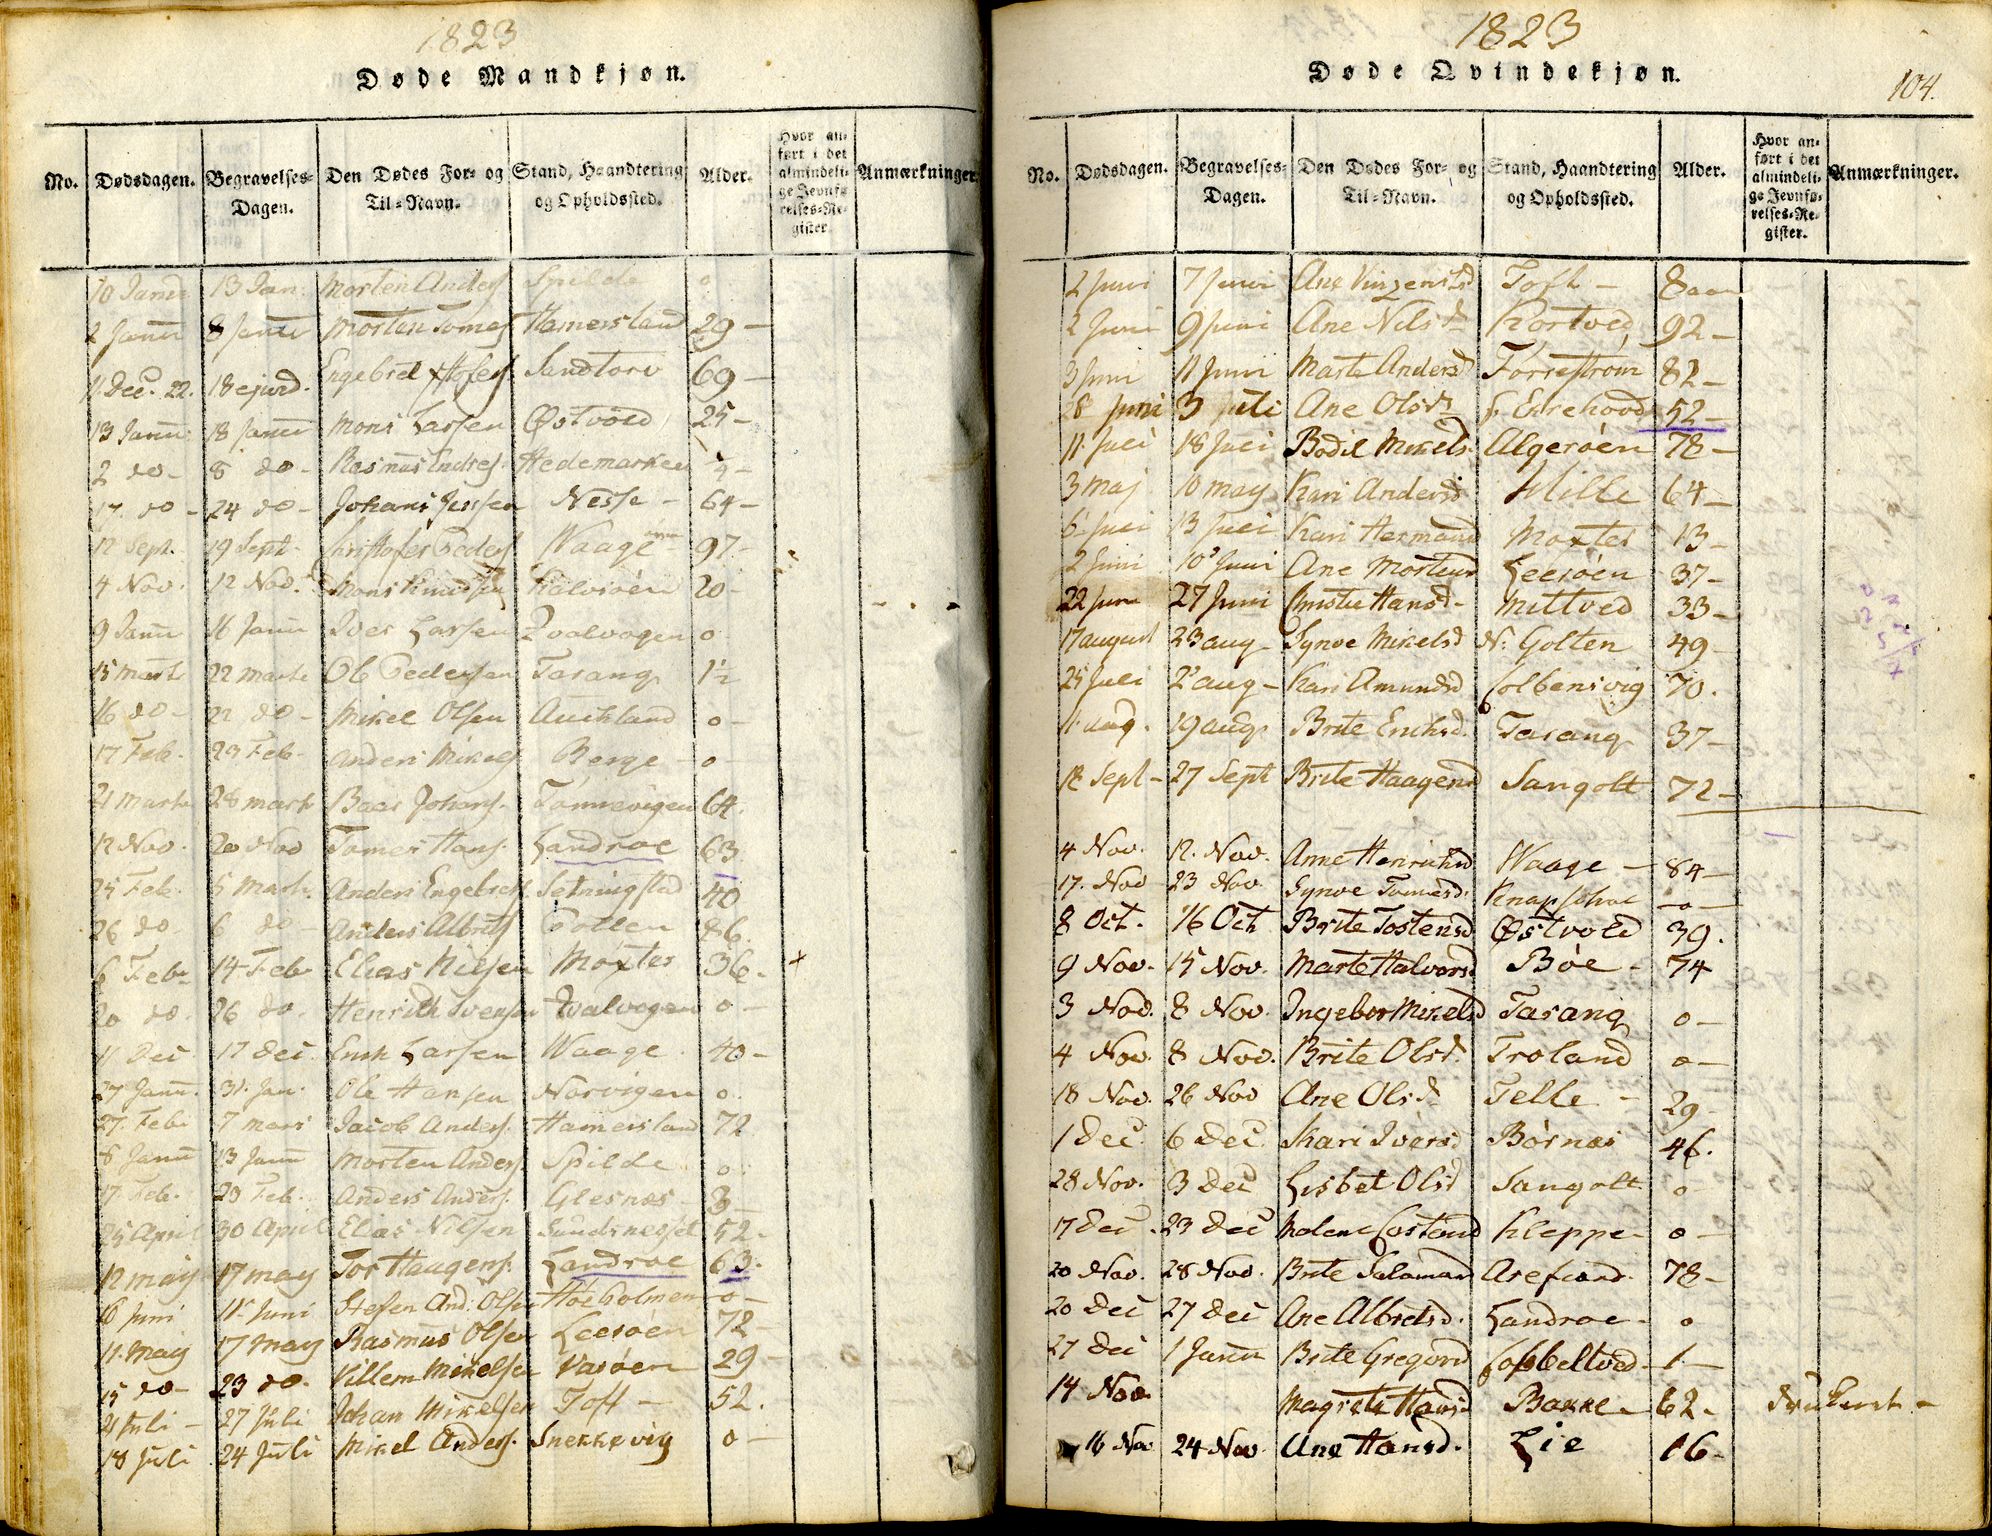 1823
Døde Mandkjøn.
No. Dødsdagen. Begravelses-Dagen. Den Dødes For- og Til-Navn. Stand, Haandtering og Opholdssted. Alder. Hvor anført i det almindelige Jevnførelses-Register. Anmærkninger.
10 Janu 13 Jan Morten Anders Spilde 0
2 Janu 8 Janu Morten Tomes Hamersland 29 -
11 Dec. 22. 18 ejusd. Engebret Sandtorv 69 -
13 Janu 18 Janu Mons Larsen Østvold 25 -
2 do - 8 do - Rasmus Endres Hedemarken
17 do - 24 do - Johans Jensen Nesse - 64 -
12 Sept. 19 Sept. Christofer Peders Waage 97 -
4 Nov. 12 Nov. Mons Knudsen Kalvøen 20 -
9 Janu 16 Janu Iver Larsen Qvalvogen 0
15 Marts 22 Marts Ole Pedersen Tarang 1½
16 do - 22 do - Mikel Olsen Auckland 0 -
17 Feb. 23 Feb. Anders Mikels Berge - 0 -
21 Marts 28 Marts Baar Johans. Tønnevigen 64.
12 Nov. 20 Nov Tomes Hans. Landroe 63
25 Feb. 5 Marts. Anders Engebrets. Setningstad 40
26 do 6 do - Anders Albrets 86.
6 Feb. 14 Feb. Elias Nilsen Moxter 36. +
20 do. 26 do. Henrich Ivensen Qvalvogen 0 -
11 Dec 17 Dec. Erich Larsen Waage 40 -
27 Janu. 31. Jan. Ole Hansen Norvigen 0.
27. Feb. 7 Mars Jacob Anders. Hamersland 72
8 Janu 13 Janu Morten Anders. Spilde 0
17. Feb. 23 Feb. Anders Anders. Glesnæs - 3 -
25 April 30 April Elias Nilsen Sundsnesset 52.
12 May 17 May Tor Haagens. Landroe 63.
6 Juni 11 Juni Stefen And: Olsen Høeholmen - 0 -
11. May 17 May Rasmus Olsen Leerøen 72 -
15 do - 23 do. Villem Mikelsen Varøen 29 -
21 Juli - 27 Juli Johan Mikelsen Toft - 52.
18 Juli 24 Juli Mikel Anders. Snekkevig 0 -
1823
Døde Qvindekjøn.
104.
No. Dødsdagen. Begravelses-Dagen. Den Dødes For- og Til-Navn. Stand, Haandtering og Opholdssted. Alder. Hvor anført i det almindelige Jevnførelses-Register. Anmærkninger.
2 Juni 7 Juni Ane Vinzentsd Toft - 8 aar
2 Juni 9 Juni Ane Nilsd Kortved 92 -
3 Juni 11 Juni Marte Andersd Førrestrøm 82 -
28 Juni 3 Juli Ane Olsd 52 -
11. Juli 18 Juli Bodil Mikels. Algerøen 78 -
3 Maj 10 May Kari Andersd Hille 64 -
6 Juli 13 Juli Kari Hermansd Moxter 13 -
2 Juni 10 Juni Ane Mortensd Leerøen 37 -
22 Juni 27 Juni Christie Hansd - Mittved 33 -
17 August 23 Aug - Synve Mikelsd N: Golten 49 -
25 Juli 2 Aug - Kari Amundsd Colbensvig 70.
11. Aug. 19 Aug. Brite Erichsd. Tarang 37 -
18 Sept - 27 Sept Brite Haagensd Sangolt 72 -
4 Nov. 12. Nov. Anne Henrichsd Waage - 84 -
17. Nov 23 Nov. Synve Tomesd. Knapschoe - 0 -
8 Oct. 16 Oct Brite Tostensd Østvold 39.
9 Nov. 15 Nov. Marte Halvorsd Bøe - 74
3 Nov. 8 Nov. Ingebor Mikelsd Tarang 0 -
4 Nov. 8 Nov. Brite Olsd. Troland 0 -
18 Nov. 26 Nov Ane Olsd. Telle - 29 -
1 Dec. 6 Dec. Kari Iversd Børnæs 46.
28 Nov. 3 Dec Lisbet Olsd Sangolt 0 -
17 Dec. 23 Dec Malene Kleppe - 0 -
20 Nov. 28 Nov. Brite Salamonsd 78 -
20 Dec 27 Dec Ane Albretsd. Landroe - 0
27 Dec 1 Janu Brite Gregorsd Cobbeltved - 1 -
14 Nov. Magrete Hansd Bakke - 62 - druknet -
16 Nov 24 Nov. Ane Hansd. Lie 16 -